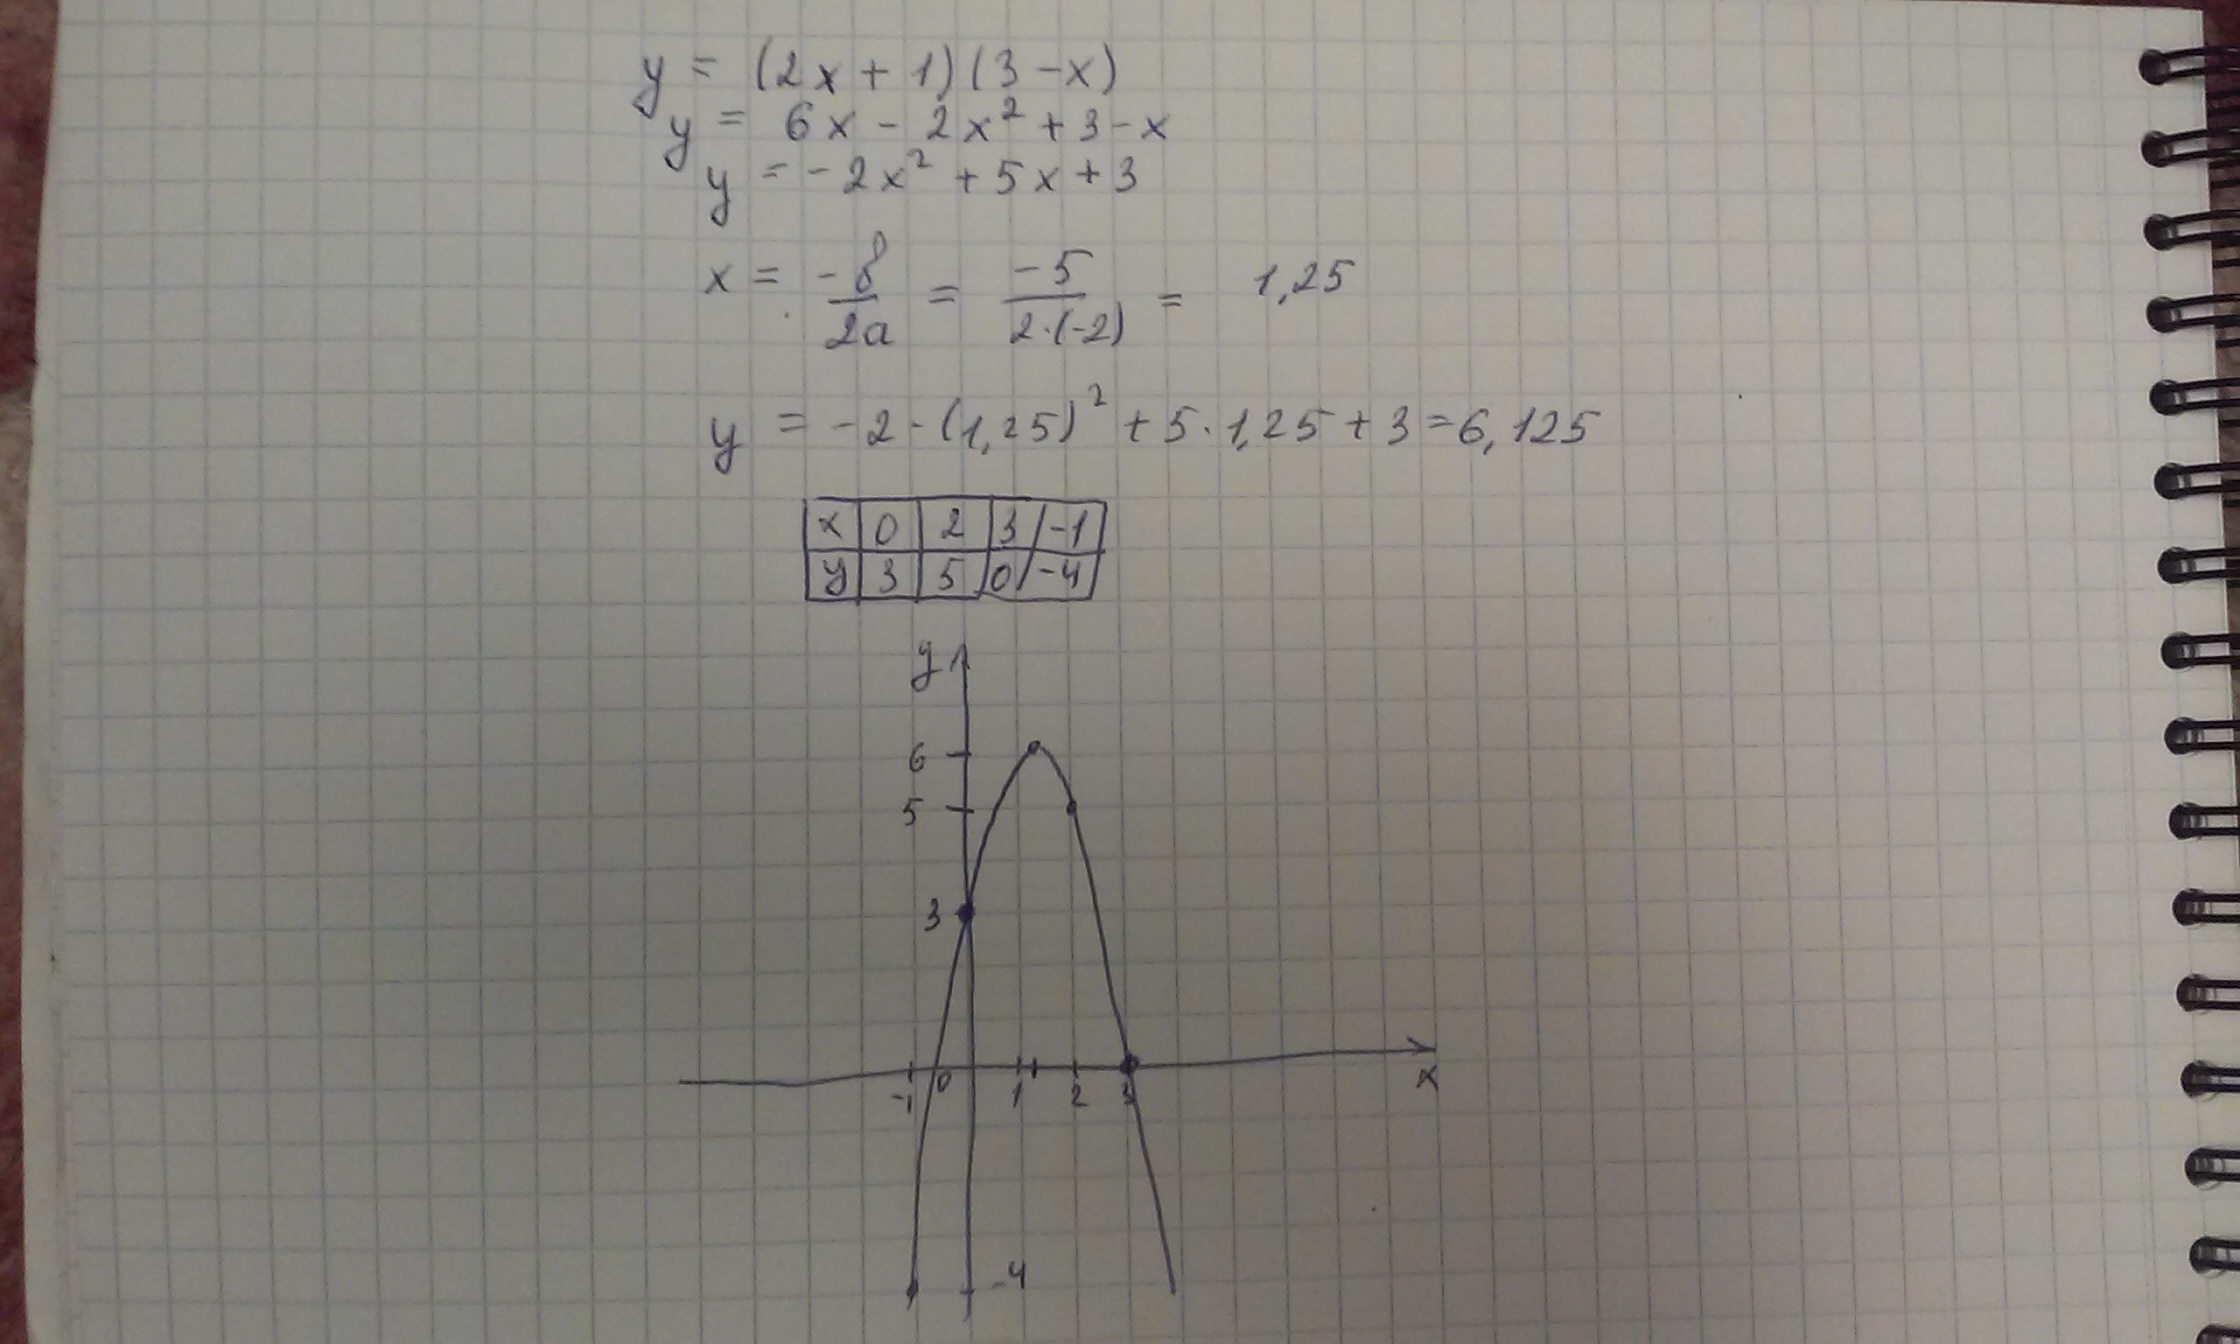 y = (2x + 1)(3 - x)
y = 6x - 2x² + 3 - x
y = -2x² + 5x + 3
x = -в/2a = -5/2·(-2) = 1,25
y = -2·(1,25)² + 5·1,25 + 3 = 6,125
x 0 2 3 -1
y 3 5 0 -4
y
6
5
3
-1 0 1 2 3 x
-4